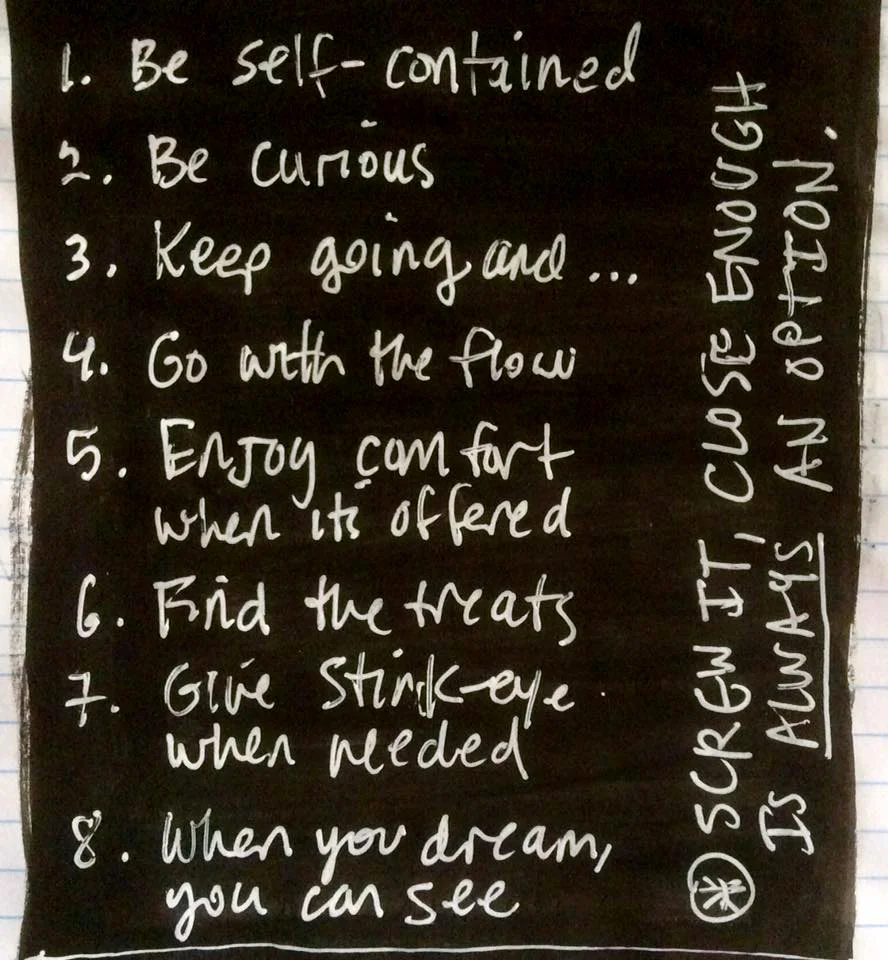 1. Be self-contained
2. Be curious
3. Keep going and ...
4. Go with the flow
5. Enjoy comfort
when its offered
6. Find the treats
7. Give Stink-eye
when needed
8. When you dream,
you can see
* SCREW IT, CLOSE ENOUGH
IS ALWAYS AN OPTION.